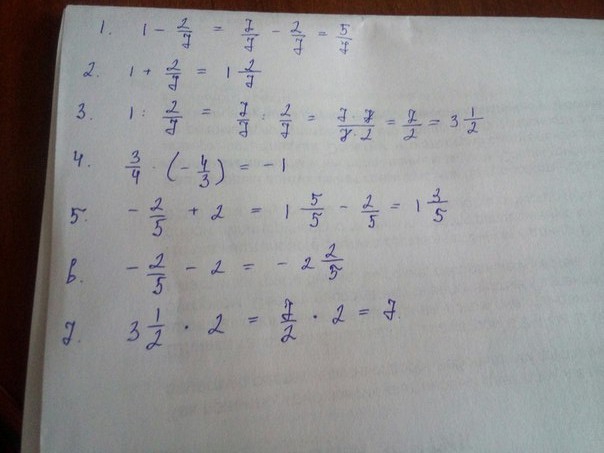 1. 1 - 2/7 = 7/7 - 2/7 = 5/7
2. 1 + 2/7 = 1 2/7
3. 1 : 2/7 = 7/7 : 2/7 = 7·7/7·2 = 7/2 = 3 1/2
4. 3/4 · (- 4/3) = -1
5. - 2/5 + 2 = 1 5/5 - 2/5 = 1 3/5
6. - 2/5 - 2 = - 2 2/5
7. 3 1/2 · 2 = 7/2 · 2 = 7.